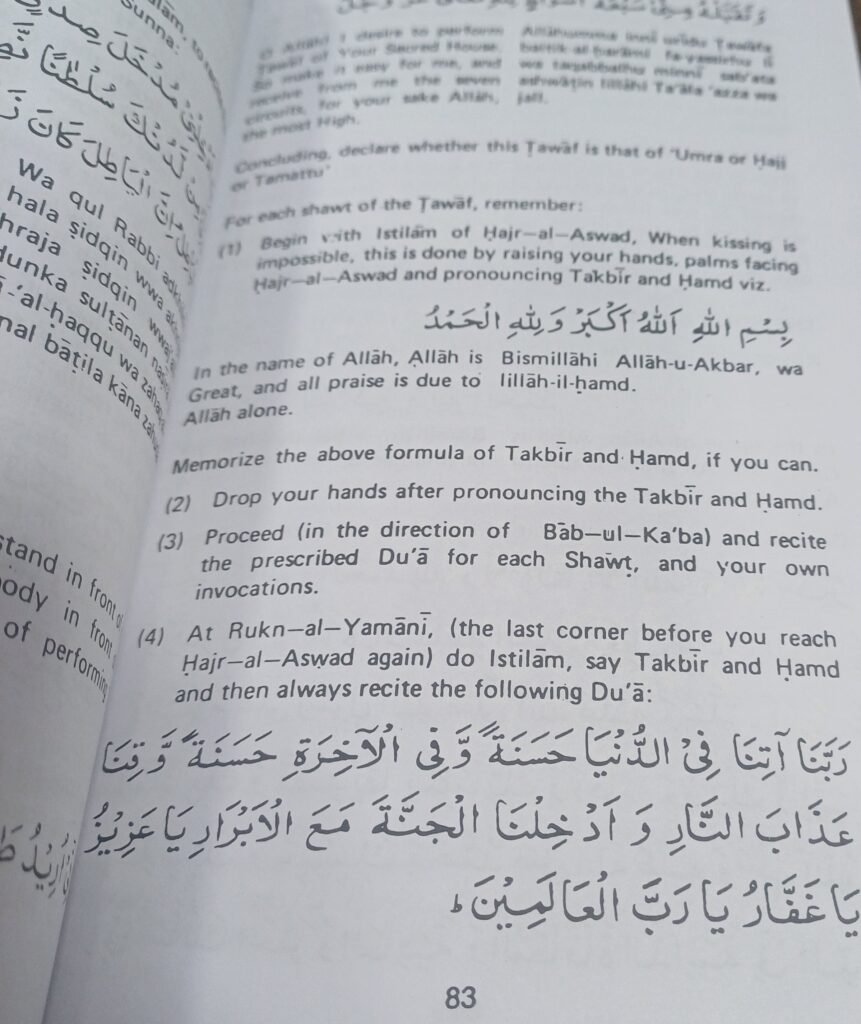 لام, to
Sunna:
Wa qul Rabbi
hala ṣidqin wwa
hraja ṣidqin wwa
dunka sulṭānan
-'al-ḥaqqu wa
nal bāṭila kāna
stand in front
ody in front
of performing
O Allāh! I desire to perform
Tawāf of Your Sacred House.
So make it easy for me, and
receive from me the seven
circuits, for your sake Allāh,
the most High.
Allāhumma innī urīdu Ṭawāfa
lillāhi Ta'āla 'azza wa
jall.
Concluding, declare whether this Ṭawāf is that of 'Umra or Ḥajj
or Tamattu'
For each shawt of the Ṭawāf, remember:
(1) Begin with Istilām of Ḥajr–al–Aswad, When kissing is
impossible, this is done by raising your hands, palms facing
Ḥajr–al–Aswad and pronouncing Takbīr and Ḥamd viz.
بِسْمِ اللهِ اَللهُ اَكْبَرْ وَلِلّٰهِ الْحَمْدُ
In the name of Allāh, Allāh is
Great, and all praise is due to
Allāh alone.
Bismillāhi Allāh-u-Akbar, wa
lillāh-il-ḥamd.
Memorize the above formula of Takbīr and Ḥamd, if you can.
(2) Drop your hands after pronouncing the Takbīr and Ḥamd.
(3) Proceed (in the direction of Bāb–ul–Ka'ba) and recite
the prescribed Du'ā for each Shawṭ, and your own
invocations.
(4) At Rukn–al–Yamānī, (the last corner before you reach
Ḥajr–al–Aswad again) do Istilām, say Takbīr and Ḥamd
and then always recite the following Du'ā:
رَبَّنَا آتِنَا فِيْ الدُّنْيَا حَسَنَةً وَّفِي الْآخِرَةِ حَسَنَةً وَّقِنَا
عَذَابَ النَّارِ وَ اَدْخِلْنَا الْجَنَّةَ مَعَ الْاَبْرَارِ يَا عَزِيْزُ
يَا غَفَّارُ يَا رَبَّ الْعَالَمِيْنَ ط
83